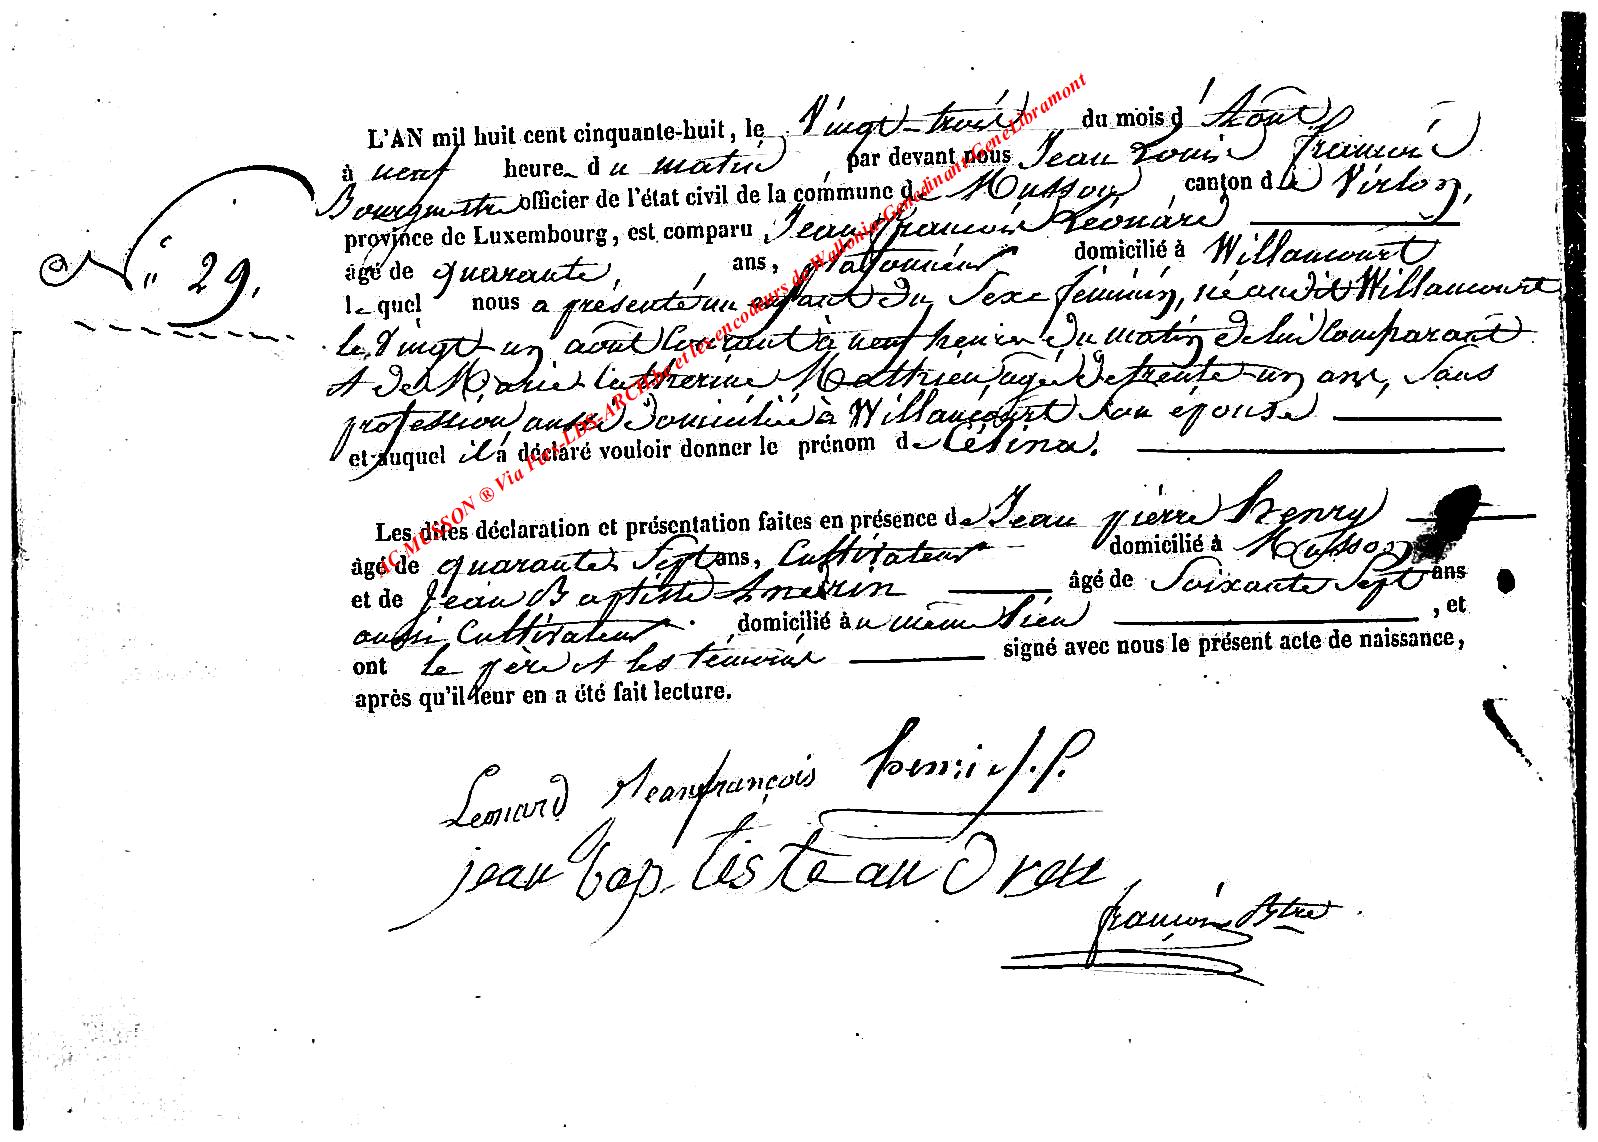 L'AN mil huit cent cinquante-huit, le Vingt-trois du mois d'Août
à neuf heures du matin, par devant nous Jean Louis François
Bourgmestre officier de l'état civil de la commune de Musson, canton de Virton,
province de Luxembourg, est comparu Jean François Léonard
N° 29.
âgé de quarante, ans, domicilié à Willancourt
lequel nous a présenté un enfant du Sexe féminin, né audit Willancourt
le Vingt-un août Courant à neuf heures du matin de lui Comparant
et de Marie Catherine Mathieu, agée de trente-un ans, Sans
profession aussi domiciliée à Willancourt son épouse
et auquel il a déclaré vouloir donner le prénom de Célina.
Les dites déclaration et présentation faites en présence de Jean pierre henry
âgé de quarante Sept ans, Cultivateur domicilié à Musson
et de Jean Baptiste âgé de Soixante Sept ans
aussi Cultivateur. domicilié au même lieu, et
ont le père et les témoins signé avec nous le présent acte de naissance,
après qu'il leur en a été fait lecture.
Leonard Jeanfrançois henri J.P.
jean baptiste
françois Btre
AC MUSSON ® Via Pars-LDS-ARCH.be et les encodeurs de Wallonia-Genedinant-GeneLibramont